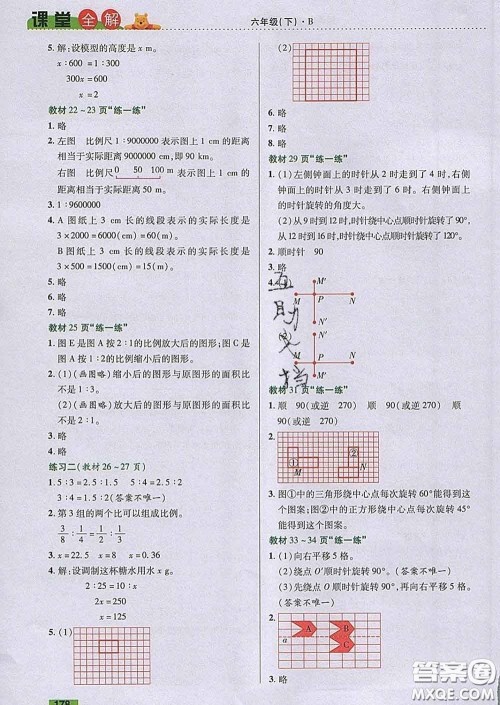 课堂全解
六年级(下)·B
5. 解:设模型的高度是 x m。
x∶600=1∶300
300x=600
x=2
教材 22~23 页“练一练”
1. 略
2. 左图 比例尺 1∶9000000 表示图上 1 cm 的距离
相当于实际距离 9000000 cm,即 90 km。
右图 比例尺 0 50 100 m 表示图上 1 cm 的距离
相当于实际距离 50 m。
3. 1∶9600000
4. A 图纸上 3 cm 长的线段表示的实际长度是
3×2000=6000(cm)=60(m)。
B 图纸上 3 cm 长的线段表示的实际长度是
3×500=1500(cm)=15(m)。
5. 略
6. 略
教材 25 页“练一练”
1. 图 E 是图 A 按 2∶1 的比例放大后的图形;图 C 是
图 B 按 1∶2 的比例缩小后的图形。
2. (1)(画图略)缩小后的图形与原图形的面积比
不是 1∶2。
(2)(画图略)放大后的图形与原图形的面积比
不是 3∶1。
3. 略
4. 略
练习二(教材 26~27 页)
1. 5∶3=2.5∶1.5 5∶2.5=3∶1.5
5∶3=2.5∶1.5 (答案不唯一)
2. 第 3 组的两个比可以组成比例。
3/8∶1/4=3/4∶1/2
3. x=22.5 x=8 x=0.6
4. 解:设调制这杯糖水用水 x g。
2∶25=10∶x
2x=250
x=125
5. (1)
178
(2)
6. 略
7. 略
8. 略
教材 29 页“练一练”
1. (1)左侧钟面上的时针从 2 时走到了 4 时,右侧
钟面上的时针从 3 时走到了 6 时。右侧钟面上
时针旋转的角度大。
(2)从 9 时到 12 时,时针绕中心点顺时针旋转了 90°。
从 12 时到 16 时,时针绕中心点顺时针旋转了 120°。
2. 顺时针 90
3. 略
4.
M′
M P N
N′
N′
M P N
M′
互助文档
教材 31 页“练一练”
1. 顺 90(或逆 270) 顺 90(或逆 270)
2.
① ②
M N
3. 图①中的三角形绕中心点每次旋转 60°能得到这
个图案;图②中的正方形绕中心点每次旋转
45°能得到这个图案。
教材 33~34 页“练一练”
1. (1)向右平移 5 格。
(2)绕点 O′顺时针旋转 90°。
(3)先绕点 O 顺时针旋转 90°,再向右平移 5 格。
(答案不唯一)
2. (1)
a A B
C
3. 略
答案圈
MXQE.COM